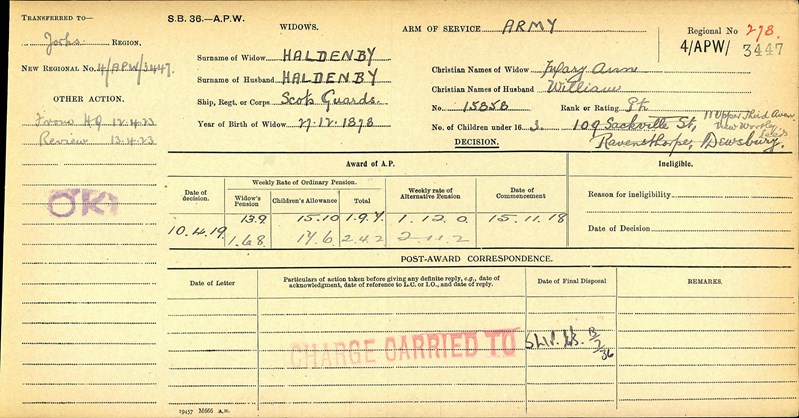 TRANSFERRED TO—
Yorks REGION.
NEW REGIONAL No. 4/APW/3447.
OTHER ACTION.
From HQ 12.4.23
Review 13.4.23
OK
S.B. 36.—A.P.W.
WIDOWS.
ARM OF SERVICE ARMY
Regional No 278.
4/APW/ 3447
Surname of Widow HALDENBY
Christian Names of Widow Mary Ann
Surname of Husband HALDENBY
Christian Names of Husband William
Ship, Regt. or Corps Scots Guards.
No. 15858 Rank or Rating Pte
Year of Birth of Widow 27.12.1878
No. of Children under 16 3. 109 Sackville St, 11 Upper Third Aven.
View
Ravensthorpe, Dewsbury.
DECISION.
Award of A.P.
Ineligible.
Date of decision.
Weekly Rate of Ordinary Pension.
Widow's Pension
Children's Allowance
Total
Weekly rate of Alternative Pension
Date of Commencement
13.9 15.10 1.9.7 1.12.0 15.11.18
10.4.19. 1.6.8. 17.6 2.4.2 2.11.2
Reason for ineligibility
Date of Decision
POST-AWARD CORRESPONDENCE.
Date of Letter
Particulars of action taken before giving any definite reply, e.g., date of acknowledgment, date of reference to L.C. or I.O., and date of reply.
Date of Final Disposal
REMARKS.
CHARGE CARRIED TO
19457 M666 A.M.